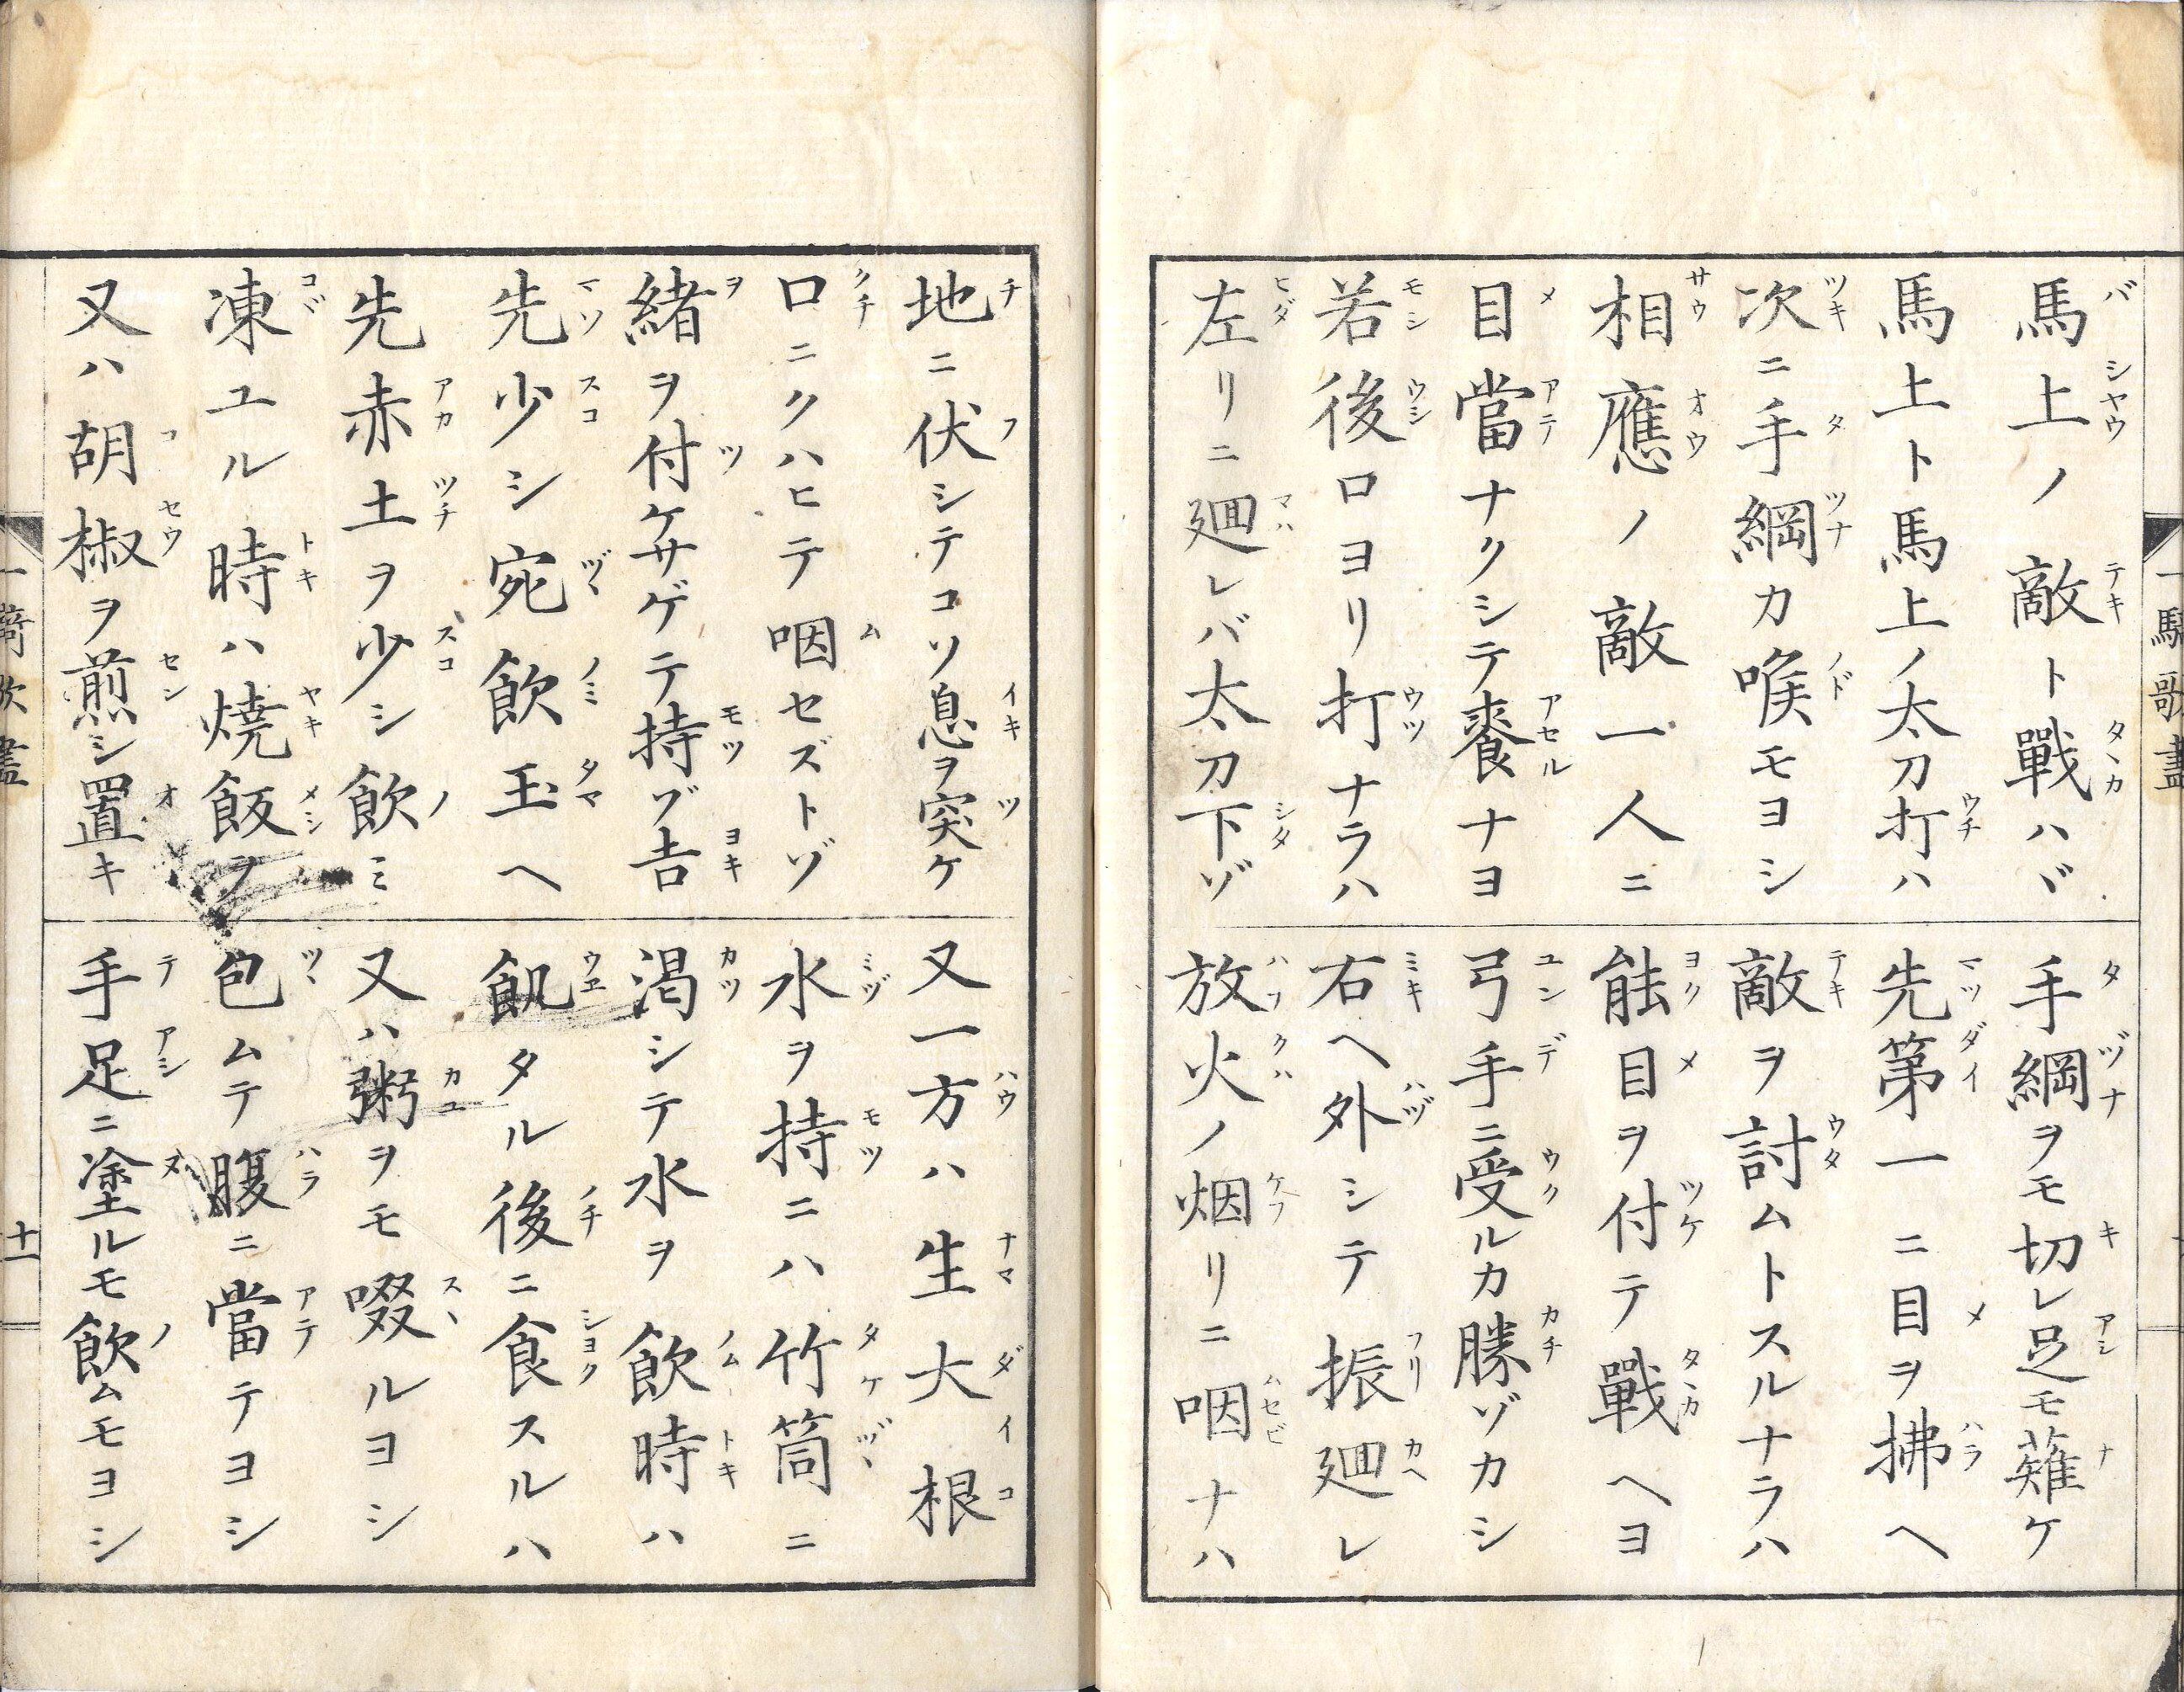 一騎歌盡
馬上ノ敵ト戰ハヾ手綱ヲモ切レ足モ薙ケ
馬上ト馬上ノ太刀打ハ先第一ニ目ヲ拂ヘ
次ニ手綱カ喉モヨシ敵ヲ討ムトスルナラハ
相應ノ敵一人ニ能目ヲ付テ戰ヘヨ
目當ナクシテ養ナヨ弓手ニ受ルカ勝ゾカシ
若後ロヨリ打ナラハ右ヘ外シテ振廻レ
左リニ廻レバ太刀下ゾ放火ノ烟リニ咽ナハ
地ニ伏シテコソ息ヲ突ケ又一方ハ生大根
口ニクハヒテ咽セズトゾ水ヲ持ニハ竹筒ニ
緒ヲ付ケサゲテ持ヅ吉渇シテ水ヲ飲時ハ
先少シ宛飲玉ヘ飢タル後ニ食スルハ
先赤土ヲ少シ飲ミ又ハ粥ヲモ啜ルヨシ
凍ユル時ハ焼飯ヲ包ムテ腹ニ當テヨシ
又ハ胡椒ヲ煎シ置キ手足ニ塗ルモ飲ムモヨシ
一騎歌盡
十一